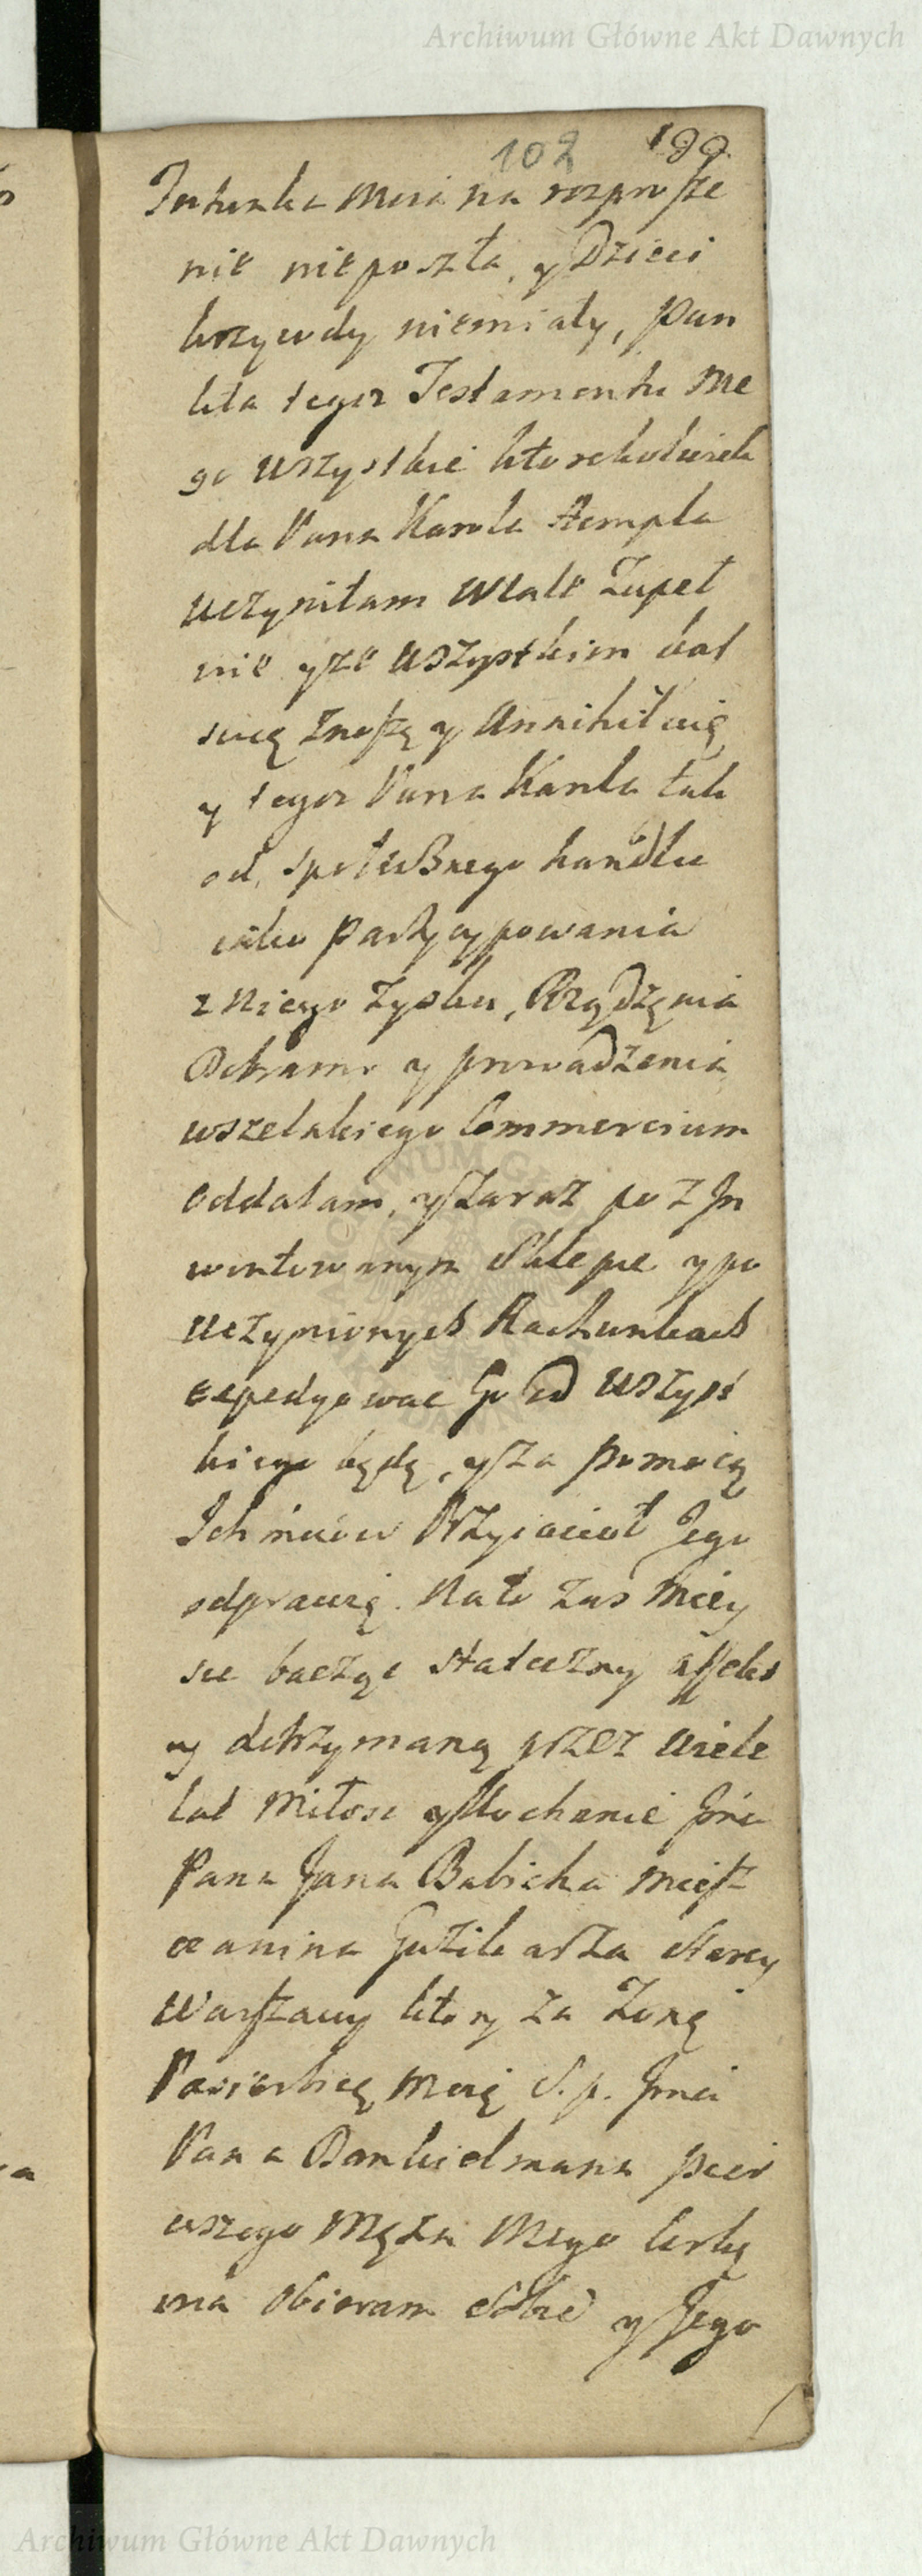 Archiwum Główne Akt Dawnych
102 199
Fortunka Moia na rozprosze
nie nieposzła, y Dzieci
krzywdy niemiały, Pun
kta tegoz Testamentu Me
go wszystkie ktorekolwiek
dla Pana Karola Hempla
uczyniłam wcale Zupeł
nie yze wszystkim kas
suię Znoszę y Annihiluię
y tegoz Pana Karola tak
od, społecznego handlu
iako Partycypowania
z Niego Zysku, Rządzęnia
Domem y prowadzenia
wszelakiego Commercium
oddalam, y Zaraz po z In
wentowanym Sklepie y po
Uczynionych Rachunkach
expedyowac Go od wszyst
kiego będę, y za pomocą
Ichmciow Przyiacioł Jego
odprawię. Na to zas Miey
sce bacząc stateczny affekt
y dotrzymaną przez wiele
lat Miłosc y Kochanie Jmci
Pana Jana Babicha Miesz
czanina Guzikarza Starey
Warszawy ktory za Zonę
Pasierbicę Moię S. p. Jmci
Pana Dankielmana pier
wszego Męża Mego Corkę
ma Obieram Sobie y Jego
Archiwum Główne Akt Dawnych